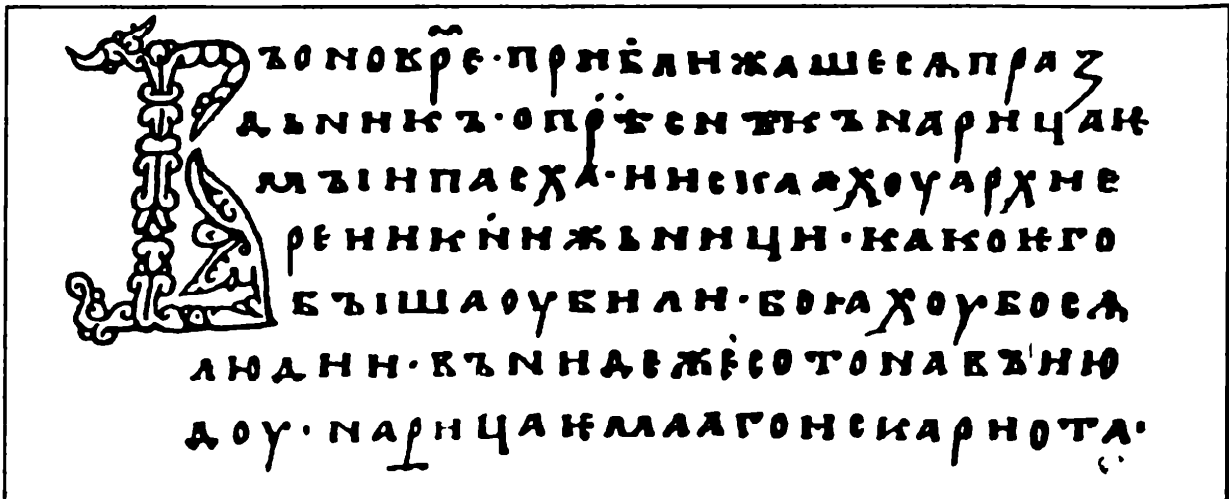 Въ оно врѣ҃ · приближаше сѧ праз
дьникъ · опрѣснъкъ нарицаѥ
мъіи пасха · и искаахоу архие
реи и кънижьници · како ѥго
бъіша оубили · боꙗхоу бо сѧ
людии · въниде же сотона въ ню
доу · нарицаѥмааго искариота ·